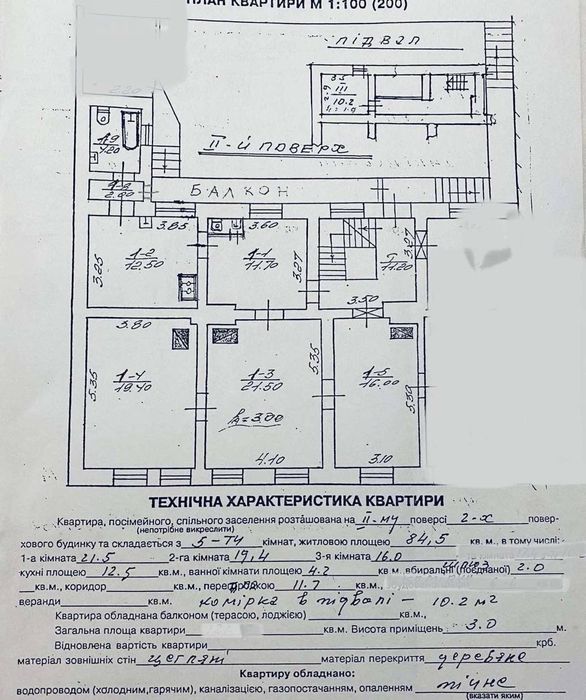 ПЛАН КВАРТИРИ М 1:100 (200)
ПІДВАЛ
3.5
III
10.2
II-Й ПОВЕРХ
1-9
4.20
БАЛКОН
2.00
3.85
3.60
1-2
12.50
3.25
1-1
11.70
3.27
3.27
11.20
3.50
3.80
1-4
19.40
5.35
1-3
21.50
5.35
h=3.00
4.10
1-5
16.00
5.30
3.10
ТЕХНІЧНА ХАРАКТЕРИСТИКА КВАРТИРИ
Квартира, посімейного, спільного заселення розташована на II-му поверсі 2-х повер-
(непотрібне викреслити)
хового будинку та складається з 5-ти кімнат, житловою площею 84,5 кв. м., в тому числі:
1-а кімната 21.5 2-га кімната 19,4 3-я кімната 16.0
кухні площею 12.5 кв.м., ванної кімнати площею 4.2 кв.м. вбиральні (поєднаної) 2.0
кв.м., коридор кв.м., передпокою 11.7 кв.м.,
веранди кв.м. комірка в підвалі - 10.2 м²
Квартира обладнана балконом (терасою, лоджією) кв.м.,
Загальна площа квартири кв.м. Висота приміщень 3.0 м.
Відновлена вартість квартири крб.
матеріал зовнішніх стін цегляні матеріал перекриття дерев'яне
Квартиру обладнано:
водопроводом (холодним,гарячим), каналізацією, газопостачанням, опаленням пічне
(вказати яким)